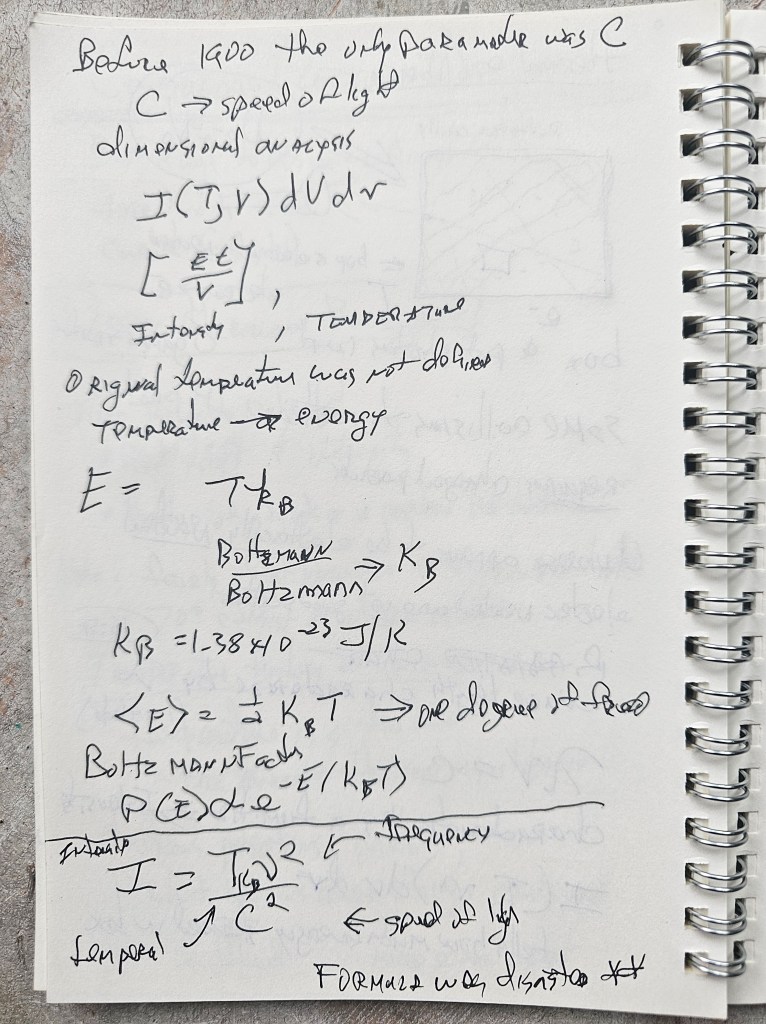 Before 1900 the only parameter was C
C → speed of light
dimensional analysis
I(T, ν) dV dν
[Et/V],
Intensity, TEMPERATURE
Original temperature was not defined
Temperature → energy
E = T k_B
Boltzmann/Boltzmann ⇒ K_B
K_B = 1.38 x 10^-23 J/K
<E> = 1/2 K_B T ⇒ one degree of freedom
Boltzmann Factor
P(E) α e^-E/(K_B T)
Intensity
I = T k_B ν^2 / C^2 ← frequency
← speed of light
temperal
Formula was disaster **